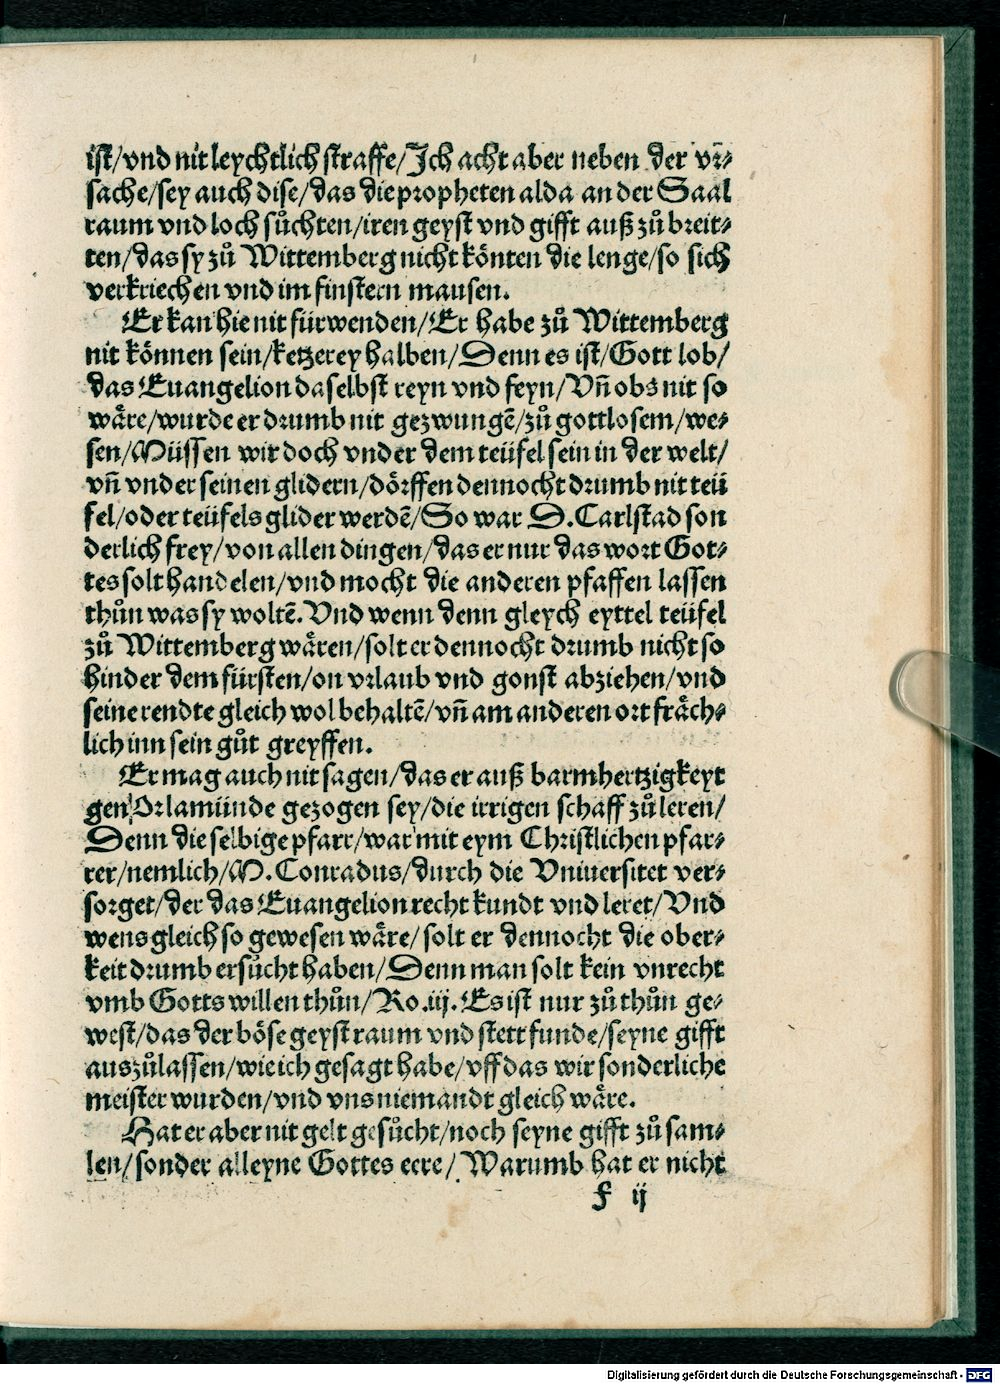 ist/vnd nit leychtlich straffe/Ich acht aber neben der vr⸗
sache/sey auch dise/das die propheten alda an der Saal
raum vnd loch sůchten/iren geyst vnd gifft auß zů breit⸗
ten/das sy zů Wittemberg nicht könten die lenge/so sich
verkriechen vnd im finstern mausen.
Er kan hie nit fürwenden/Er habe zů Wittemberg
nit können sein/ketzerey halben/Denn es ist/Gott lob/
das Euangelion daselbst reyn vnd feyn/Vñ obs nit so
wäre/wurde er drumb nit gezwungē/zů gottlosem/we⸗
sen/Müssen wir doch vnder dem teüfel sein in der welt/
vñ vnder seinen glidern/dörffen dennocht drumb nit teü
fel/oder teüfels glider werdē/So war D.Carlstad son
derlich frey/von allen dingen/das er nur das wort Got⸗
tes solt handelen/vnd mocht die anderen pfaffen lassen
thůn was sy woltē.Vnd wenn denn gleych eyttel teüfel
zů Wittemberg wären/solt er dennocht drumb nicht so
hinder dem fürsten/on vrlaub vnd gonst abziehen/vnd
seine rendte gleich wol behaltē/vñ am anderen ort fräch⸗
lich inn sein gůt greyffen.
Er mag auch nit sagen/das er auß barmhertzigkeyt
gen Orlamünde gezogen sey/die irrigen schaff zů leren/
Denn die selbige pfarr/war mit eym Christlichen pfar⸗
rer/nemlich/M.Conradus/durch die Vniuersitet ver⸗
sorget/der das Euangelion recht kundt vnd leret/Vnd
wens gleich so gewesen wäre/solt er dennocht die ober⸗
keit drumb ersůcht haben/Denn man solt kein vnrecht
vmb Gotts willen thůn/Ro.iij.Es ist nur zů thůn ge⸗
west/das der böse geyst raum vnd stett funde/seyne gifft
auszůlassen/wie ich gesagt habe/vff das wir sonderliche
meister wurden/vnd vns niemandt gleich wäre.
Hat er aber nit gelt gesůcht/noch seyne gifft zů sam⸗
len/sonder alleyne Gottes eere/Warumb hat er nicht
f ij
Digitalisierung gefördert durch die Deutsche Forschungsgemeinschaft - DFG